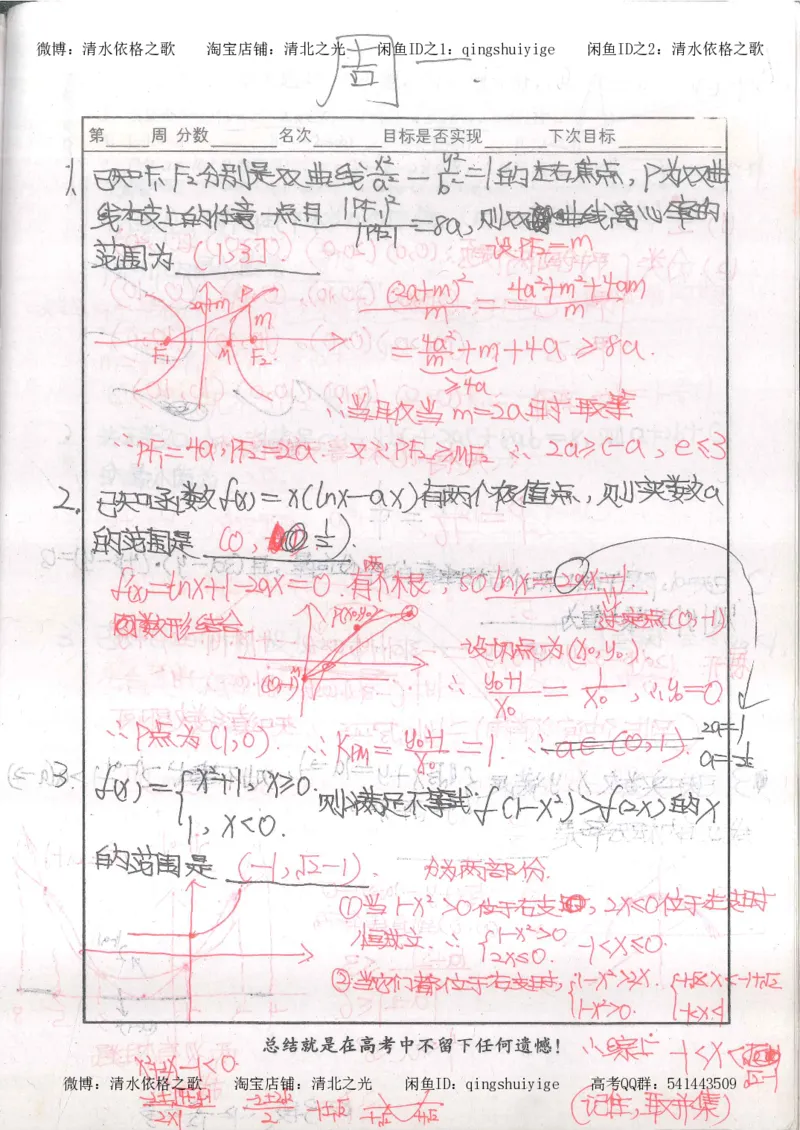 微博：清水依格之歌 淘宝店铺：清北之光 闲鱼ID之1：qingshuiyige 闲鱼ID之2：清水依格之歌
周一
第____周 分数______ 名次______ 目标是否实现______ 下次目标__________
1. 已知F₁ F₂分别是双曲线 x²/a² - y²/b² = 1的左右焦点，P为双曲
线右支上的任意一点且 |PF₁|²/|PF₂| = 8a，则双曲线离心率的
范围为 (1,3].
设PF₂=m
(2a+m)²/m = (4a²+m²+4am)/m
2a+m P m
F₁ M F₂
= 4a²/m + m + 4a ≥ 8a.
≥4a
∴当且仅当 m=2a时取等
∵PF₁=4a, PF₂=2a. 又∵PF₂≥MF₂ ∴ 2a≥c-a, e≤3
2. 已知函数f(x)=x(lnx-ax)有两个极值点，则实数a
的范围是 (0, 1/2).
f'(x)=lnx+1-2ax=0 有两个根，so lnx=2ax-1.
数形结合
P(x₀,y₀)
过定点(0,-1)
设切点为(x₀,y₀).
(0,-1)
∴ (y₀+1)/x₀ = 1/x₀, ∴y₀=0
∴P点为(1,0). ∴K_PM = (y₀+1)/x₀ = 1. ∴a∈(0,1).
2a=1
a=1/2
3. f(x)={x²+1, x≥0.
1, x<0.
则满足不等式f(1-x²)>f(2x)的x
的范围是 (-1,√2-1).
分为两部份.
①当1-x²>0位于右支时，2x≤0位于左支时
恒成立. ∴ {1-x²>0 2x≤0. -1<x≤0.
②当它们都位于右支时，{1-x²>2x. 1-x²>0. {-1-√2<x<-1+√2 -1<x<1
总结就是在高考中不留下任何遗憾！
∴综上 -1<x<√2-1
x²+2x-1<0.
微博：清水依格之歌 淘宝店铺：清北之光 闲鱼ID：qingshuiyige 高考QQ群：541443509
(-2±2√2)/2 -1±√2
(记住，取并集)